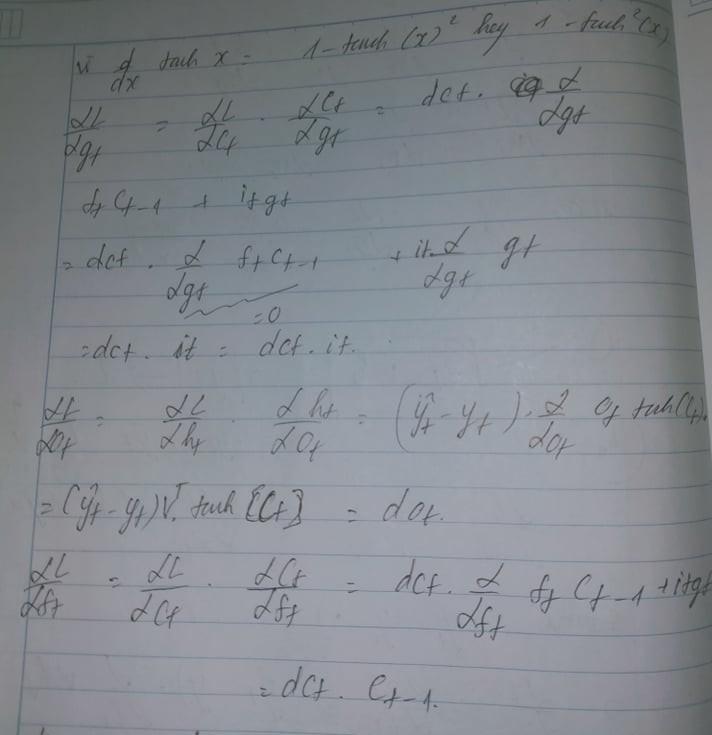 vì d/dx tanh x = 1 - tanh(x)² hay 1 - tanh²(x)
∂L/∂gt = ∂L/∂Ct · ∂Ct/∂gt = dct · ∂/∂gt
ft Ct-1 + itgt
= dct · ∂/∂gt ft Ct-1 + it ∂/∂gt gt
=0
= dct · it = dct · it.
∂L/∂Ot = ∂L/∂ht · ∂ht/∂Ot = (ŷt - yt) · ∂/∂Ot Ot tanh(Ct).
= (ŷt - yt) Vᵀ. tanh [Ct] = dOt.
∂L/∂ft = ∂L/∂Ct · ∂Ct/∂ft = dct · ∂/∂ft ft Ct-1 + itgt
= dct · Ct-1.